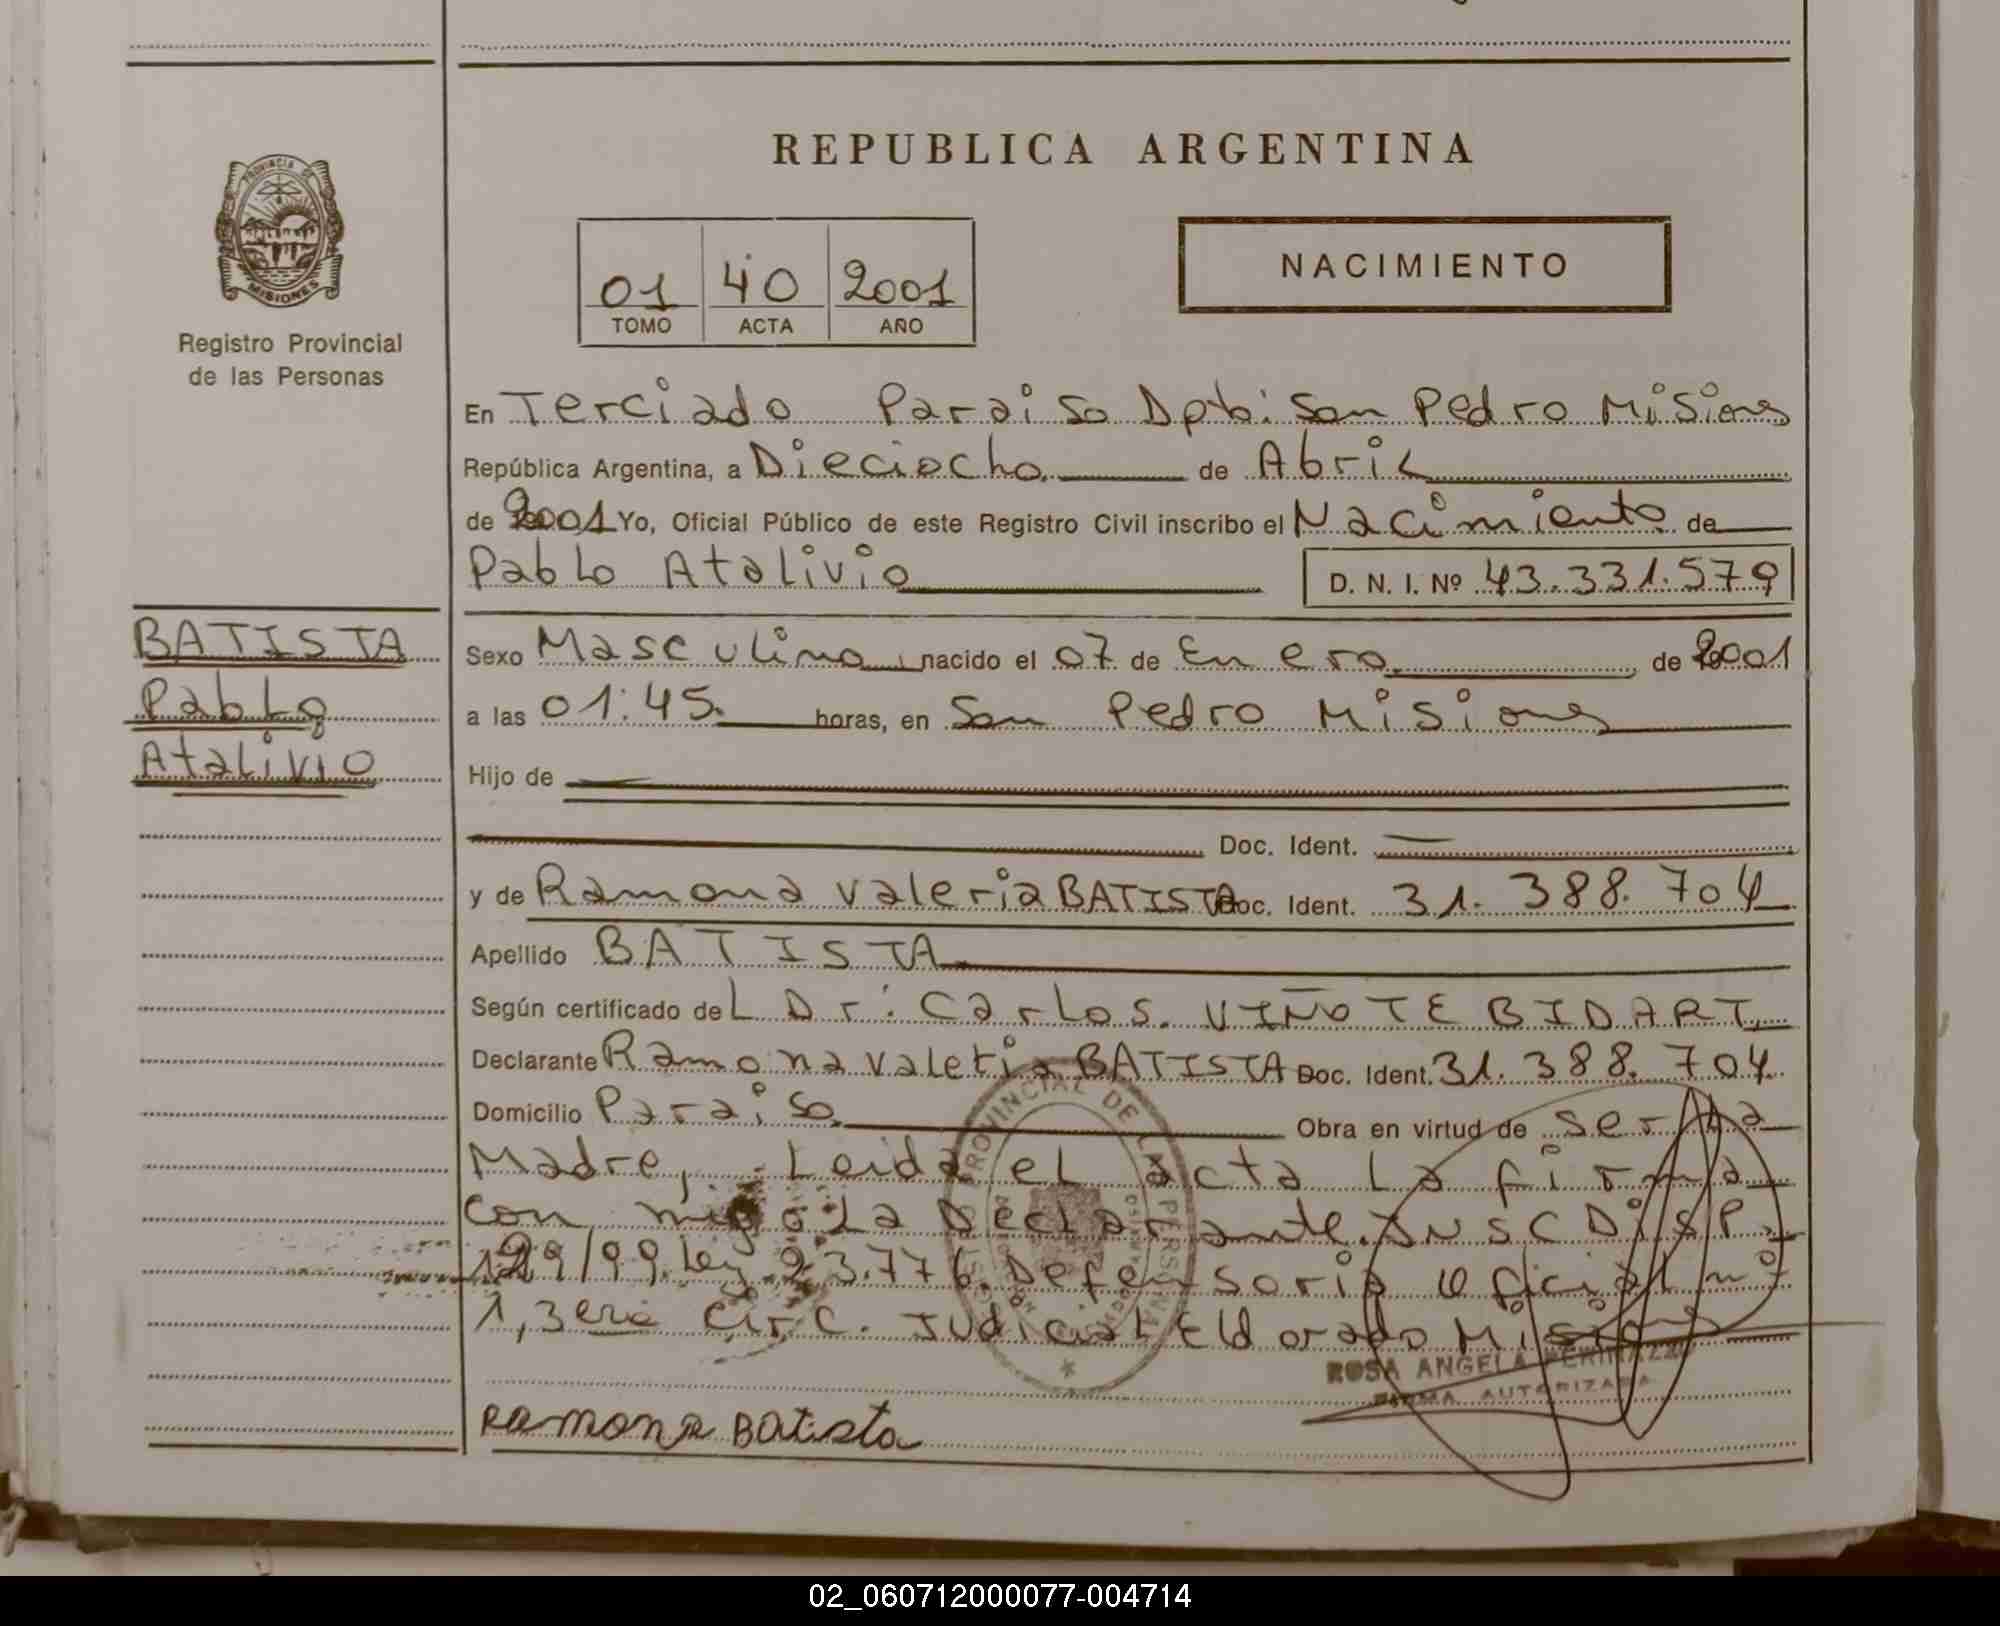 REPUBLICA ARGENTINA
PROVINCIA DE
MISIONES
Registro Provincial
de las Personas
01 40 2001
TOMO ACTA AÑO
NACIMIENTO
En Terciado Paraiso Dpto: San Pedro Misiones
República Argentina, a Dieciocho de Abril
de 2001 Yo, Oficial Público de este Registro Civil inscribo el Nacimiento de
Pablo Atalivio D. N. I. Nº 43.331.579
BATISTA
Pablo
Atalivio
Sexo Masculino, nacido el 07 de Enero, de 2001
a las 01:45. horas, en San Pedro Misiones
Hijo de
Doc. Ident. —
y de Ramona Valeria BATISTA Doc. Ident. 31.388.704
Apellido BATISTA
Según certificado del Dr: Carlos. VIÑOTE BIDART
Declarante Ramona Valeria BATISTA Doc. Ident. 31.388.704
Domicilio Paraiso Obra en virtud de ser la
Madre, Leida el acta la firma
con migo La Declarante. INSC DISP.
129/99. Ley 23.776. Defensoria Oficial nº
1, 3era Circ. Judicial Eldorado Misiones
PROVINCIAL DE LAS PERSONAS
ROSA ANGELA
FIRMA AUTORIZADA
Ramona Batista
02_060712000077-004714